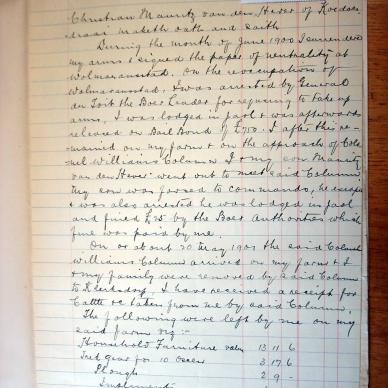 Christian Mauritz van den Hever of Roedoes
draai maketh oath and saith
During the month of June 1900 I surrendered
my arms & signed the paper of neutrality at
Wolmaransstad. On the reoccupation of
Wolmaransstad, I was arrested by General
du Toit the Boer Leader for refusing to take up
arms, I was lodged in jail & was afterwards
released on Bail Bond of £750. I after this re-
mained on my farm & on the approach of Colo
nel Williams Column I & my son Mauritz
van den Hever went out to meet said Column,
My son was forced to commando, he escaped
& was also arrested he was lodged in jail
and fined £25 by the Boer Authorities which
fine was paid by me.
On or about 20 May 1901 the said Colonel
Williams Column arrived on my farm & I
& my family were removed by said Column
to Klerksdorp, I have received a receipt for
Cattle &c taken from me by said Column,
The following were left by me on my
said farm viz:-
Household Furniture value 13. 11. 6
gear for 10 Oxen 3. 17. 6
Plough 2. 9. -